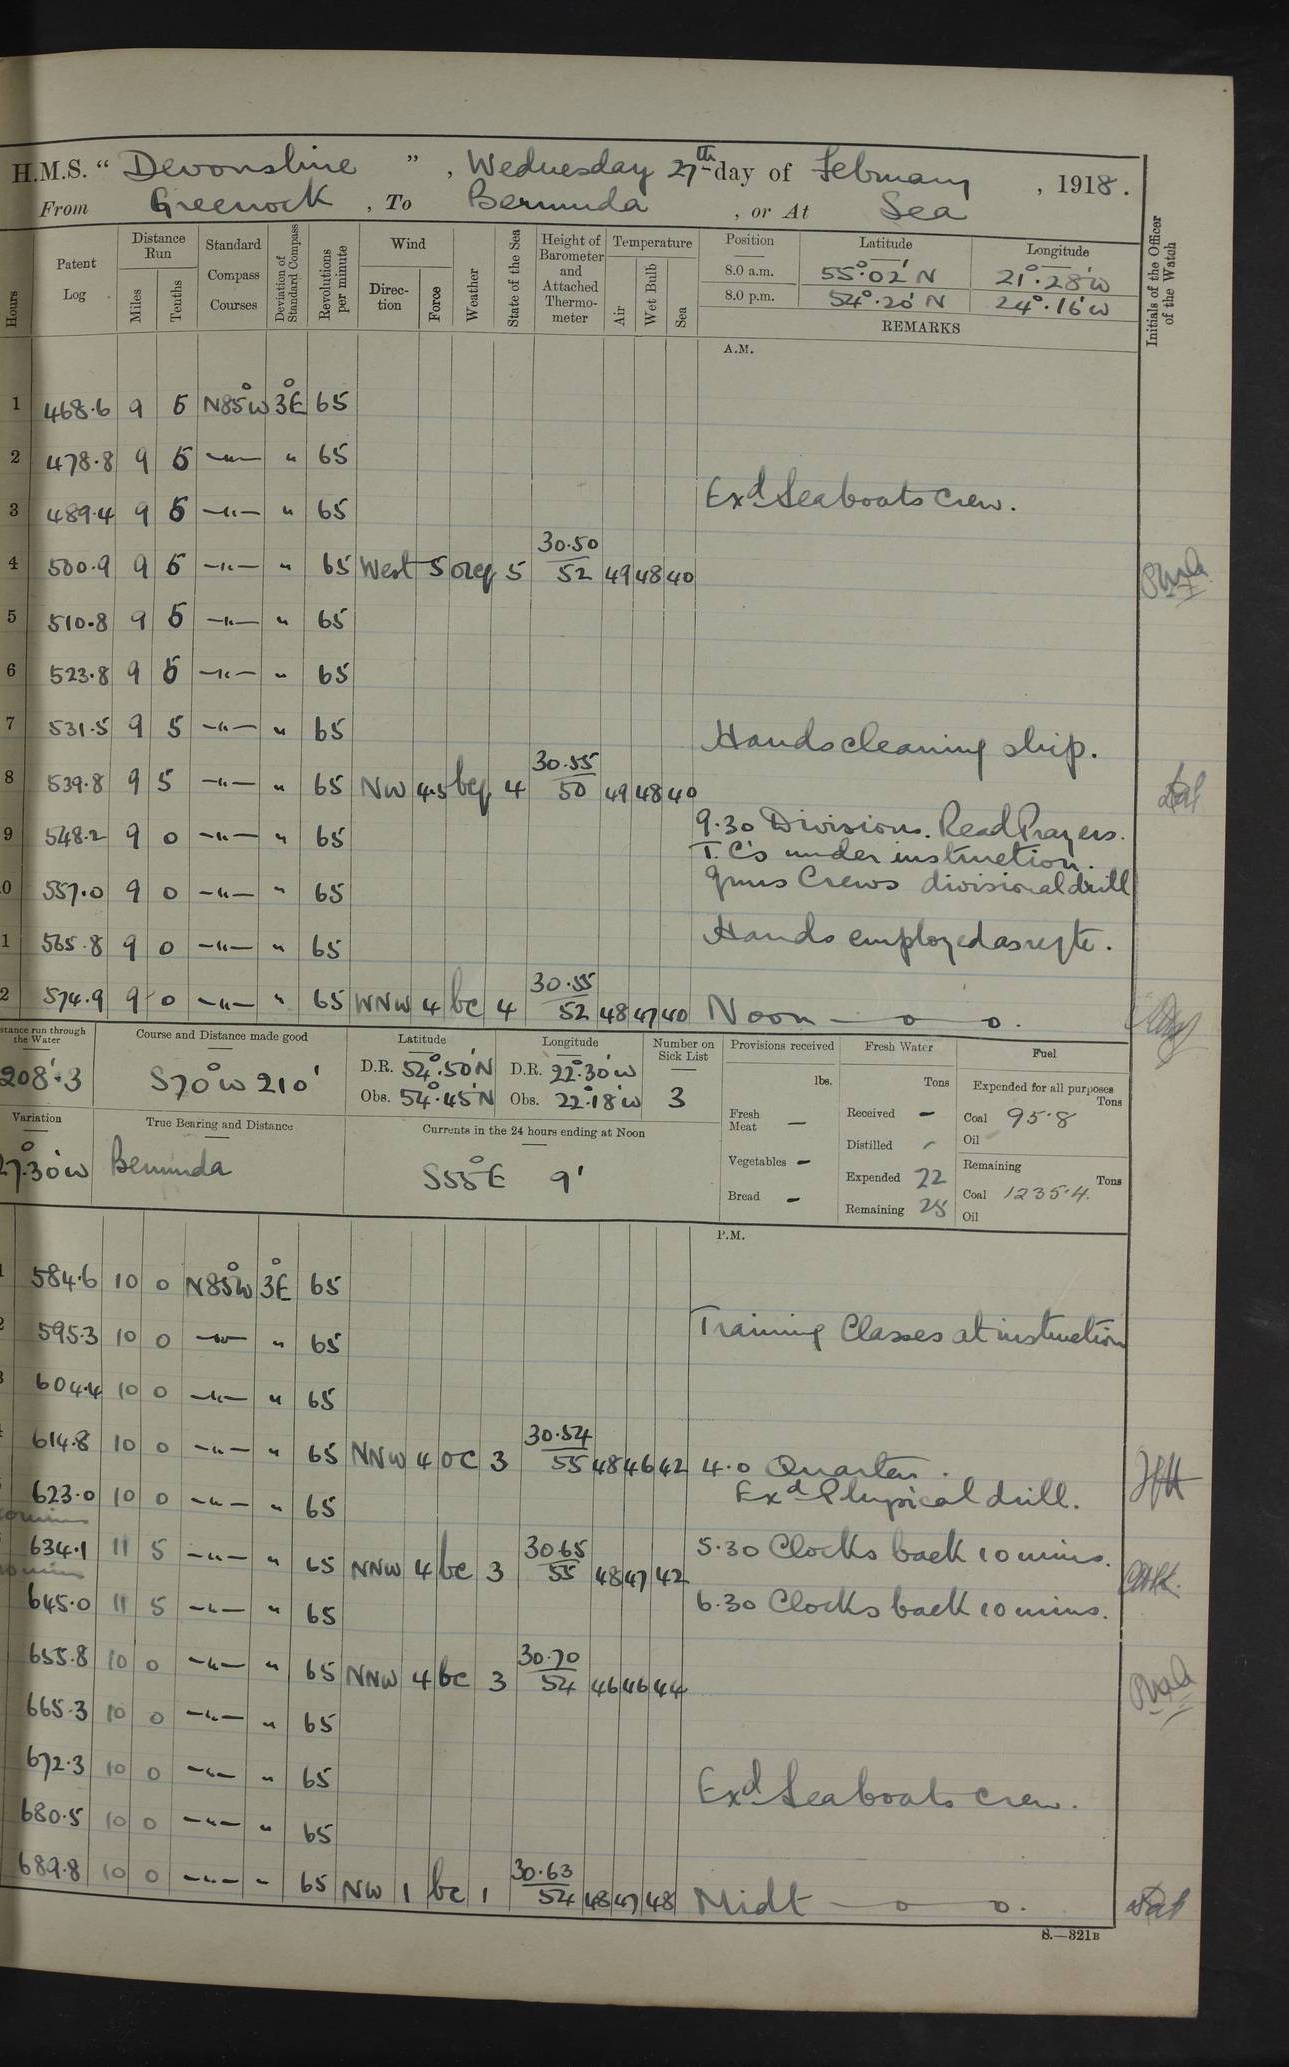 H.M.S. “ Devonshire ” , Wednesday 27th day of February , 1918.
From Greenock , To Bermuda , or At Sea
Hours
Patent Log
Distance Run
Miles
Tenths
Standard Compass Courses
Deviation of Standard Compass
Revolutions per minute
Wind
Direction
Force
Weather
State of the Sea
Height of Barometer and Attached Thermometer
Temperature
Air
Wet Bulb
Sea
Position Latitude Longitude
8.0 a.m. 55°.02' N 21°.28' W
8.0 p.m. 54°.20' N 24°.16' W
REMARKS
Initials of the Officer of the Watch
A.M.
1 468.6 9 5 N85°W 3°E 65
2 478.8 9 5 —"— " 65
3 489.4 9 5 —"— " 65 Exd Seaboats crew.
4 500.9 9 5 —"— " 65 West 5 5 30.50/52 49 48 40
5 510.8 9 5 —"— " 65
6 523.8 9 5 —"— " 65
7 531.5 9 5 —"— " 65 Hands cleaning ship.
8 539.8 9 5 —"— " 65 NW 4.5 bcq 4 30.55/50 49 48 40
9 548.2 9 0 —"— " 65 9.30 Divisions. Read Prayers.
T.C's under instruction.
0 557.0 9 0 —"— " 65 guns Crews divisional drill
1 565.8 9 0 —"— " 65 Hands employed as reqte.
2 574.9 9 0 —"— " 65 WNW 4 bc 4 30.55/52 48 47 40 Noon — o — o.
stance run through the Water
208'.3
Course and Distance made good
S70°W 210'
Latitude
D.R. 54°.50'N
Obs. 54°.45'N
Longitude
D.R. 22°.30'W
Obs. 22°.18'W
Number on Sick List
3
Variation
27°.30'W
True Bearing and Distance
Bermuda
Currents in the 24 hours ending at Noon
S55°E 9'
Provisions received
lbs.
Fresh Meat —
Vegetables —
Bread —
Fresh Water
Tons
Received —
Distilled —
Expended 22
Remaining 28
Fuel
Expended for all purposes
Tons
Coal 95.8
Oil
Remaining
Tons
Coal 1235.4
Oil
P.M.
584.6 10 0 N85°W 3°E 65
595.3 10 0 —"— " 65 Training Classes at instruction
604.4 10 0 —"— " 65
614.8 10 0 —"— " 65 NNW 4 oc 3 30.54/55 48 46 42 4.0 Quarters.
623.0 10 0 —"— " 65 Exd Physical drill.
634.1 11 5 —"— " 65 NNW 4 bc 3 30.65/55 48 47 42 5.30 Clocks back 10 mins.
645.0 11 5 —"— " 65 6.30 Clocks back 10 mins.
655.8 10 0 —"— " 65 NNW 4 bc 3 30.70/54 46 46 44
665.3 10 0 —"— " 65
672.3 10 0 —"— " 65 Exd Seaboats crew.
680.5 10 0 —"— " 65
689.8 10 0 —"— " 65 NW 1 bc 1 30.63/54 48 47 48 Midt — o — o.
S.—321B